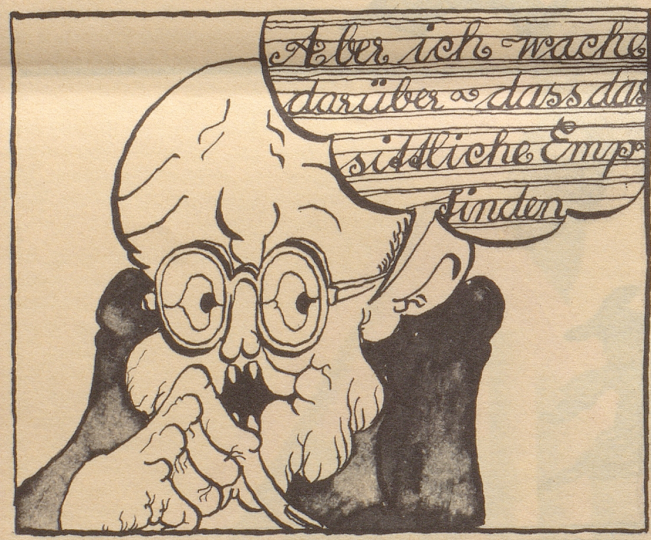 Aber ich wache
darüber dass das
sittliche Emp
finden